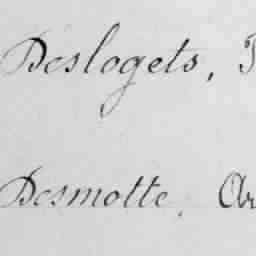 Deslogets, T
Desmotte, Ar